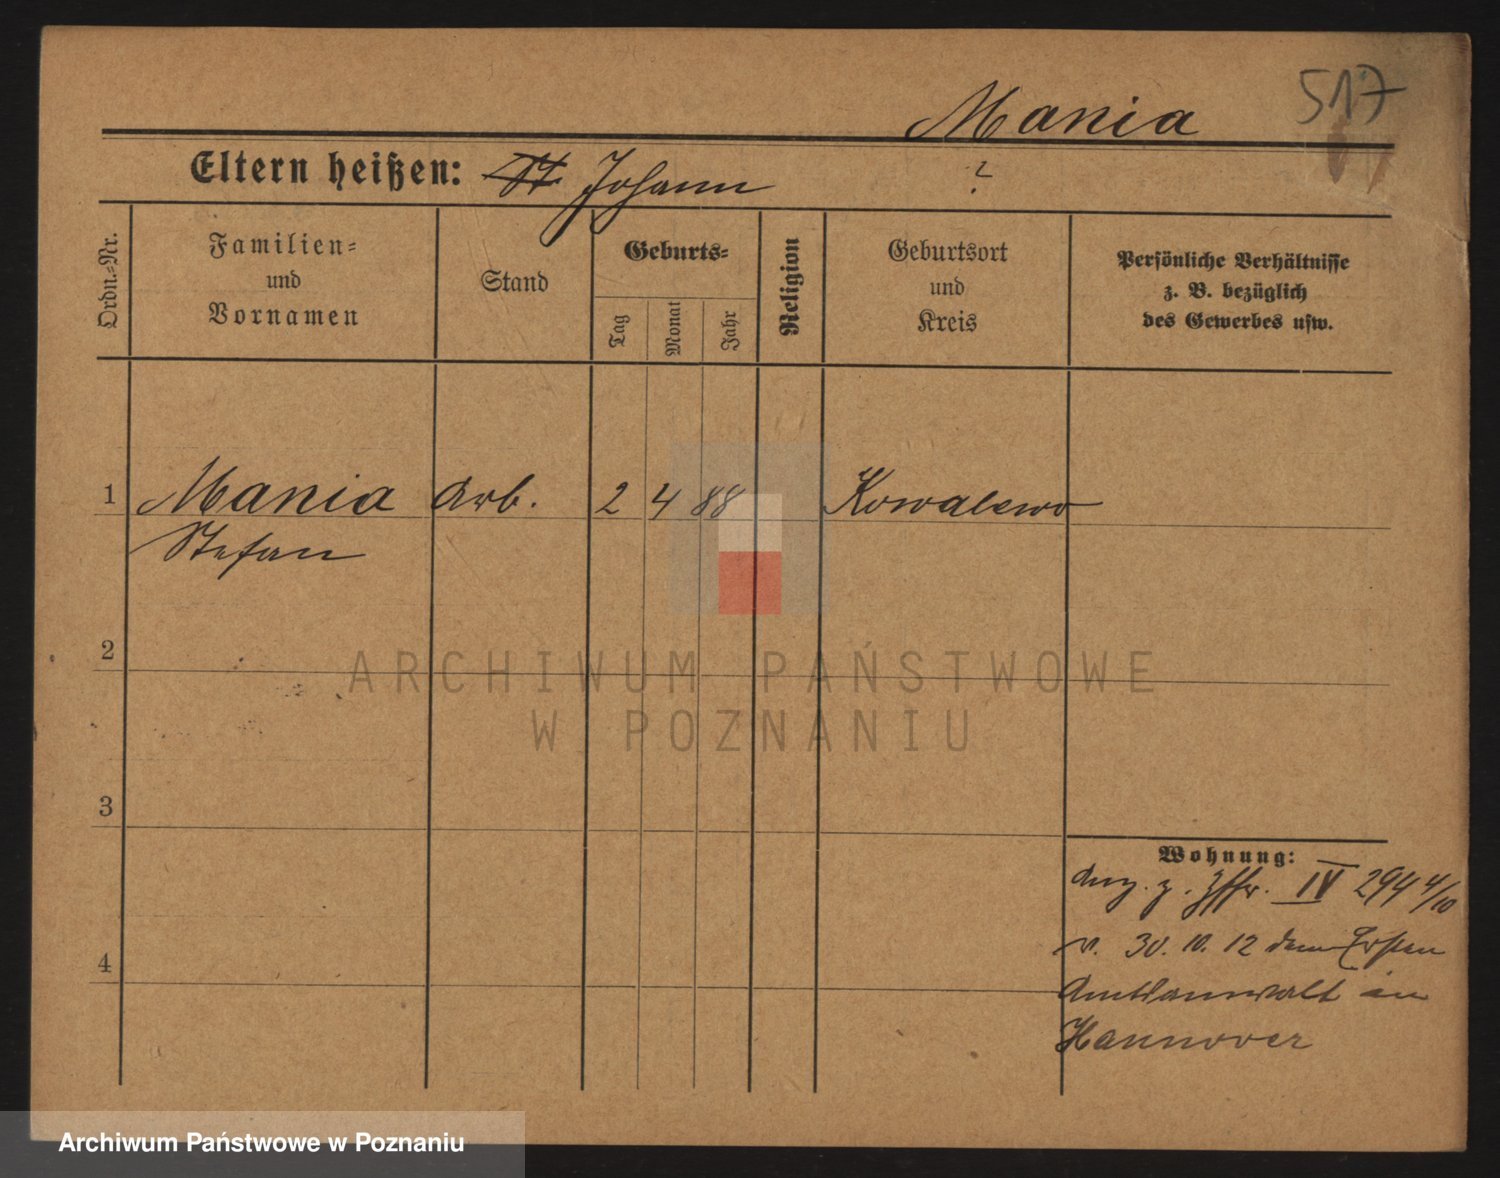 517
Mania
Eltern heißen: St Johann ?
Ordn.-Nr.
Familien-
und
Vornamen
Stand
Geburts-
Tag
Monat
Jahr
Religion
Geburtsort
und
Kreis
Persönliche Verhältnisse
z. B. bezüglich
des Gewerbes usw.
1 Mania Arb. 2 4 88 Kowalewo
Stefan
2
3
4
Wohnung:
z. IV 294 4/10
v. 30. 10. 12 dem Ersten
Amtsanwalt in
Hannover
ARCHIWUM PAŃSTWOWE
W POZNANIU
Archiwum Państwowe w Poznaniu